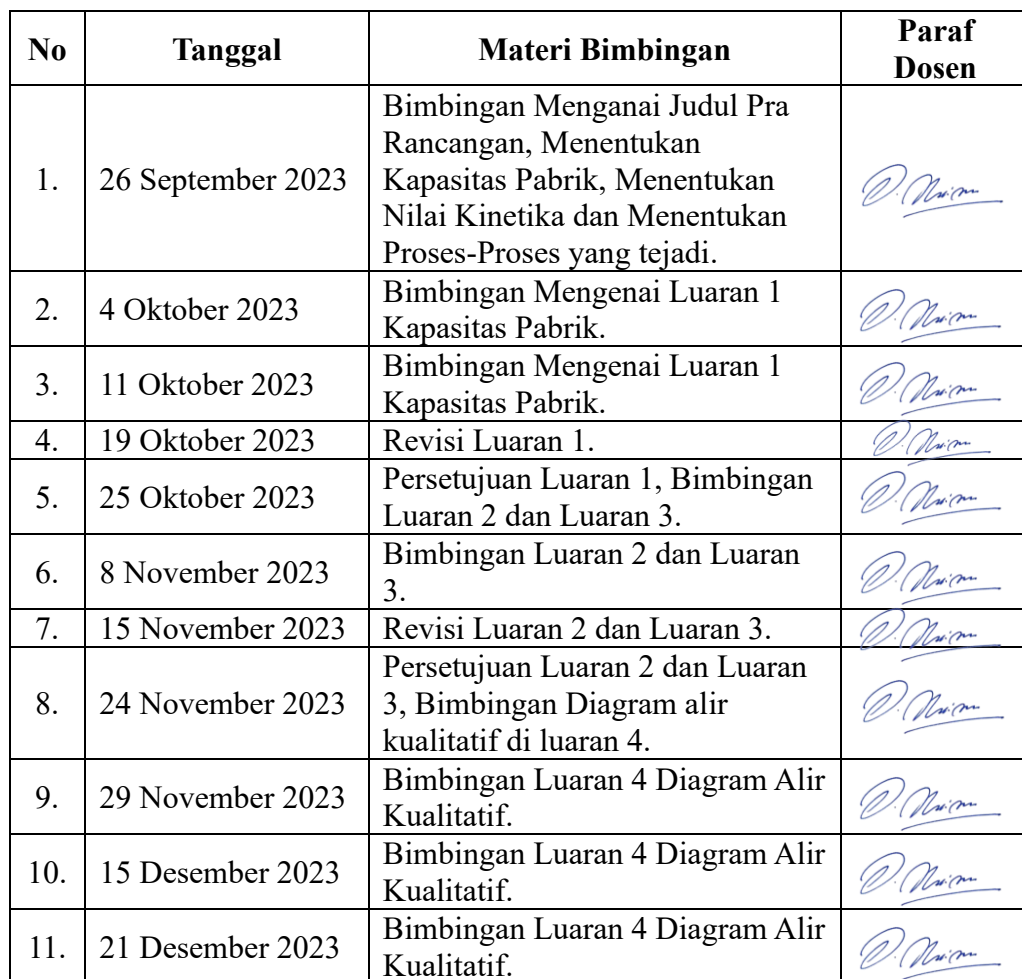 No Tanggal Materi Bimbingan Paraf
Dosen
1. 26 September 2023 Bimbingan Menganai Judul Pra
Rancangan, Menentukan
Kapasitas Pabrik, Menentukan
Nilai Kinetika dan Menentukan
Proses-Proses yang tejadi.
2. 4 Oktober 2023 Bimbingan Mengenai Luaran 1
Kapasitas Pabrik.
3. 11 Oktober 2023 Bimbingan Mengenai Luaran 1
Kapasitas Pabrik.
4. 19 Oktober 2023 Revisi Luaran 1.
5. 25 Oktober 2023 Persetujuan Luaran 1, Bimbingan
Luaran 2 dan Luaran 3.
6. 8 November 2023 Bimbingan Luaran 2 dan Luaran
3.
7. 15 November 2023 Revisi Luaran 2 dan Luaran 3.
8. 24 November 2023 Persetujuan Luaran 2 dan Luaran
3, Bimbingan Diagram alir
kualitatif di luaran 4.
9. 29 November 2023 Bimbingan Luaran 4 Diagram Alir
Kualitatif.
10. 15 Desember 2023 Bimbingan Luaran 4 Diagram Alir
Kualitatif.
11. 21 Desember 2023 Bimbingan Luaran 4 Diagram Alir
Kualitatif.